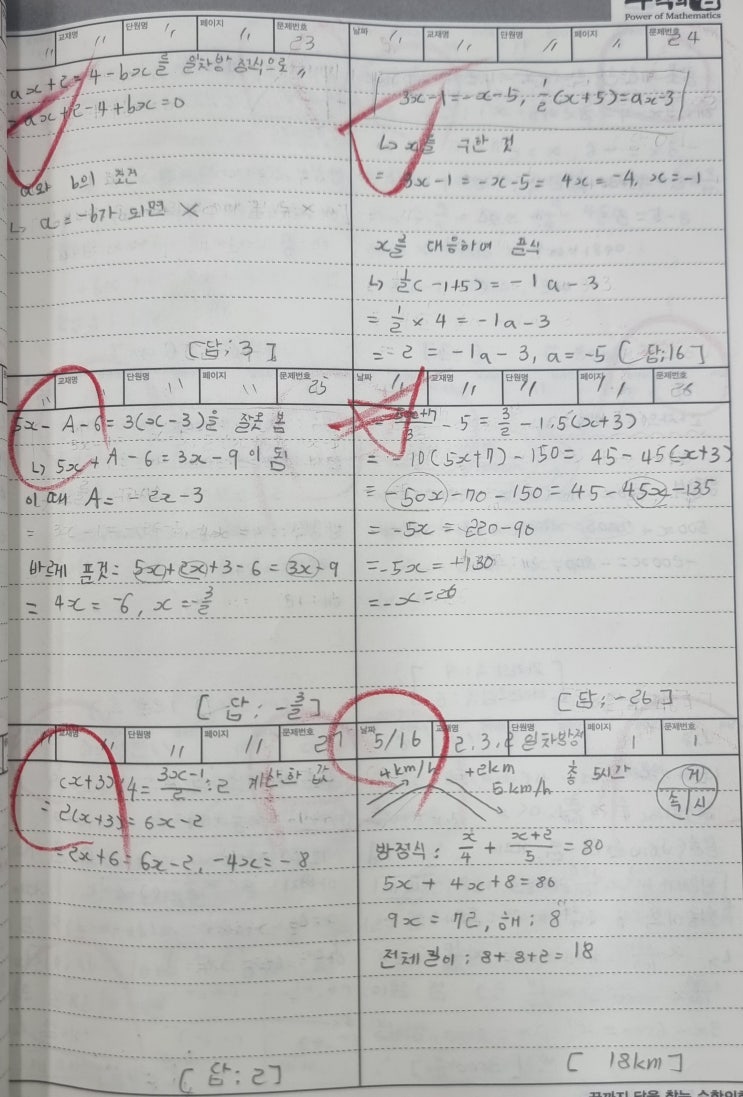 Power of Mathematics
교재명 단원명 페이지 문제번호
〃 〃 〃 〃 23
ax+2=4-bx를 일차방정식으로 〃
ax+2-4+bx=0
a와 b의 조건
↳ a=-b가 되면 ×
[답; 3]
날짜 교재명 단원명 페이지 문제번호
〃 〃 〃 〃 24
3x-1=-x-5, 1/2(x+5)=ax-3
↳ x를 구한 것
= 3x-1=-x-5= 4x=-4, x=-1
x를 대응하여 풀식
↳ 1/2(-1+5)=-1a-3
= 1/2×4=-1a-3
= 2=-1a-3, a=-5 [답;16]
교재명 단원명 페이지 문제번호
〃 〃 〃 25
5x-A-6=3(x-3)을 잘못 봄
↳ 5x+A-6=3x-9이 됨
이때 A=-2x-3
바르게 푼것: 5x+2x+3-6=3x-9
= 4x=-6, x=-3/2
[답; -3/2]
날짜 교재명 단원명 페이지 문제번호
〃 〃 〃 〃 26
-5=3/2-1.5(x+3)
= -10(5x+7)-150=45-45(x+3)
= -50x-70-150=45-45x-135
= -5x=220-90
= -5x=+130
= -x=26
[답; -26]
교재명 단원명 페이지 문제번호
〃 〃 〃 〃 27
(x+3):4=3x-1/2:2 계산한 값
= 2(x+3)=6x-2
= 2x+6=6x-2, -4x=-8
[답; 2]
날짜 교재명 단원명 페이지 문제번호
5/16 2,3,2 일차방정 1 1
4km/h +2km 5km/h 총 5시간 거 속 시
방정식: x/4+x+2/5=80
5x+4x+8=80
9x=72, 해; 8
전체길이; 8+8+2=18
[18km]